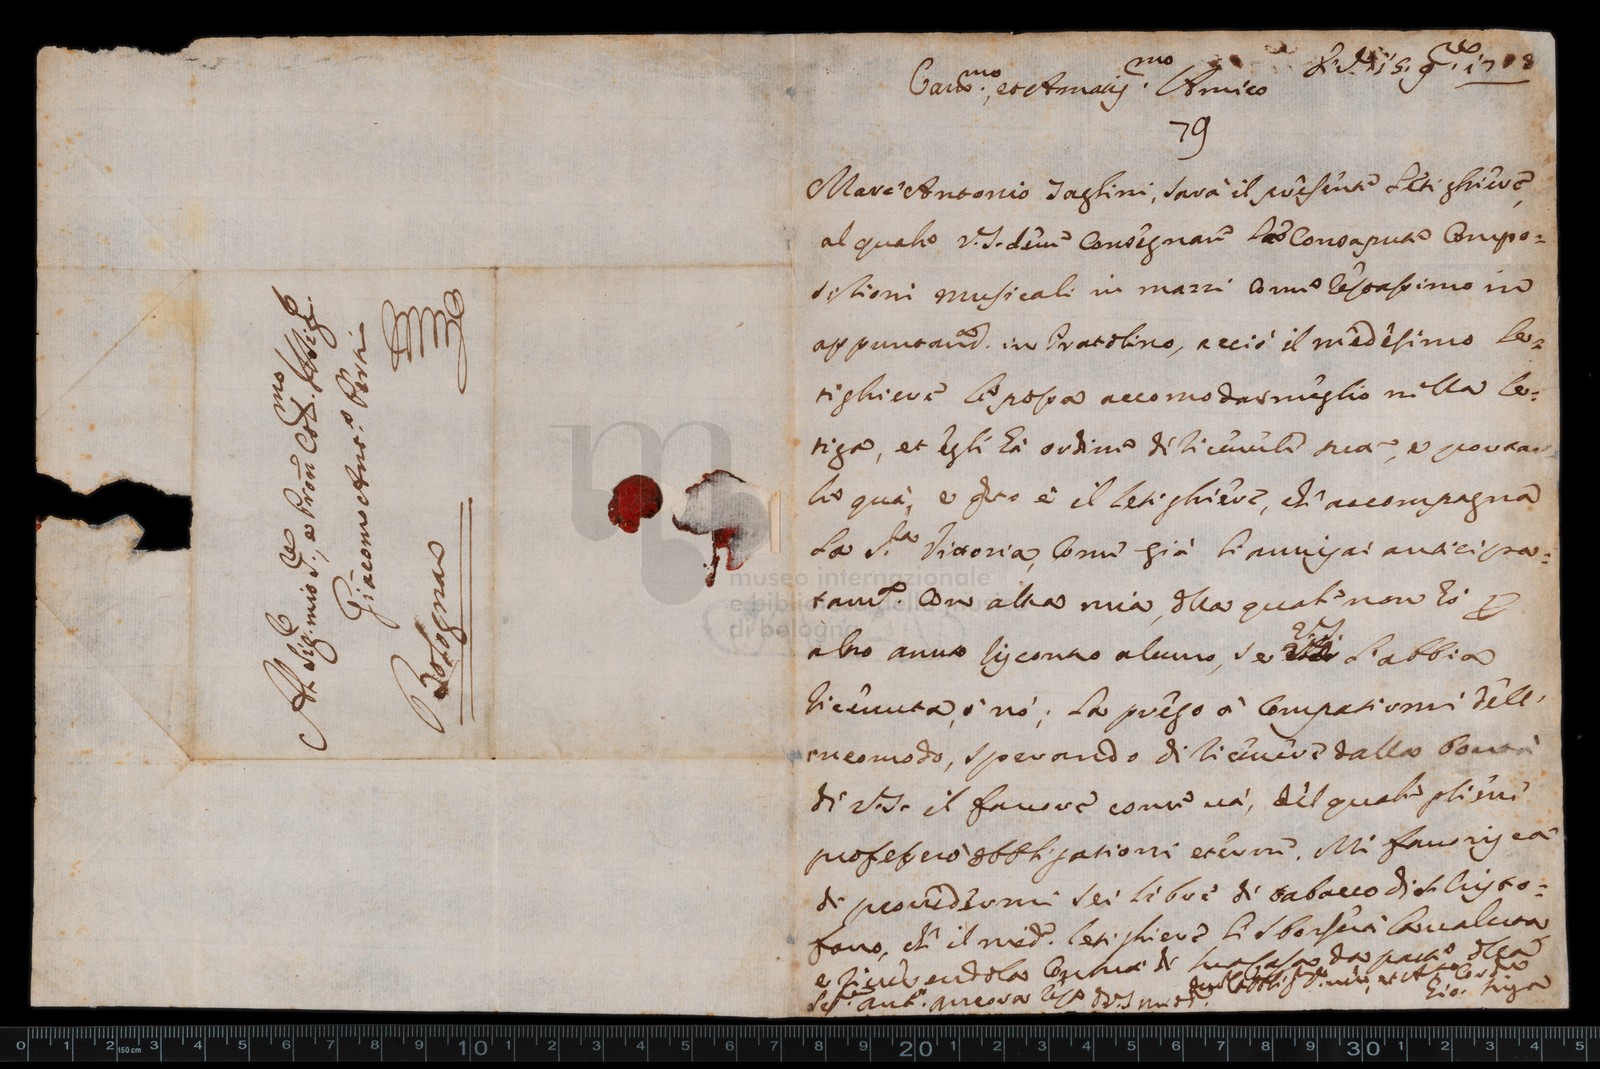 Car.mo, et Amatis.mo Amico
79
Marc'Antonio Taglini, sarà il presente letighiere,
al quale V.S. deve consegnare le consapute compo=
sitioni musicali in mazzi come restassimo in
appuntam.to in Pratolino, acciò il medesimo le=
tighiere le possa accomodar meglio nella le=
tiga, et egli hà ordine di riceverle, e portar
le quà, e q.to è il letighiere, che accompagna
la S.ra Vittoria, come già li avvisai anticipa=
tam.te con altra mia, della quale non hò p
altro avuto riscontro alcuno, se V.S. l'abbia
ricevuta, ò nò; la prego à compatirmi dell'
incomodo, sperando di ricevere dalla bontà
di V.S. il favore come và, del quale gliene
professerò obbligationi eterne. Mi favorisca
di provedermi sei libre di tabacco di S. Cristo=
fano, che il med.o letighiere li sborserà la valuta
e ricevendola
Al Sig. mio S.re, e Pron Col.mo
Giacomo Ant.o Perti
Bologna
museo internazionale
e biblioteca della musica
di bologna